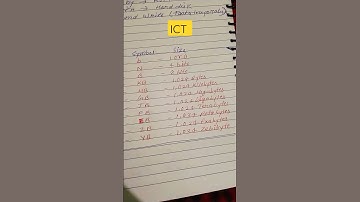 → Hard disc
ICT
Symbol Size
b - 1 or 0
N - 4 bits
B - 8 bits
KB - 1,024 Bytes
MB - 1,024 Kilobytes
GB - 1,024 Megabytes
TB - 1,024 Gigabytes
PB - 1,024 Terabytes
EB - 1,024 Petabytes
ZB - 1,024 Exabytes
YB - 1,024 Zettabyte